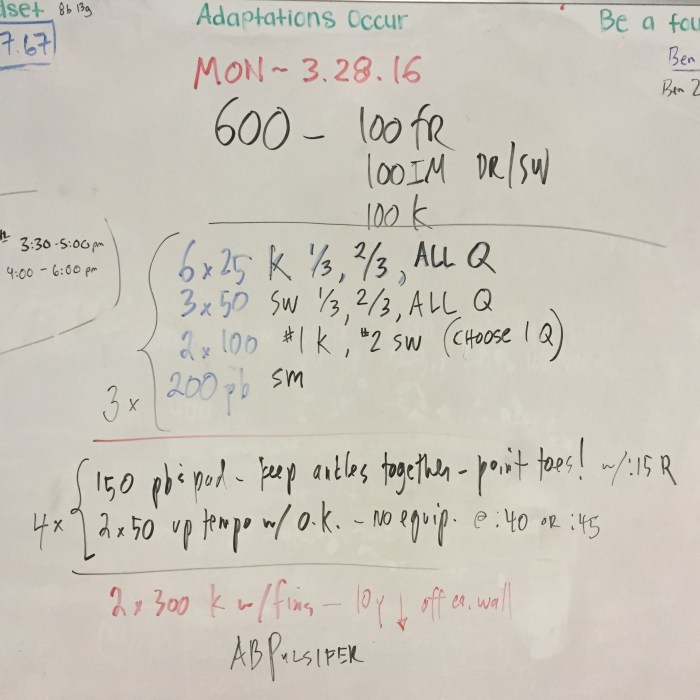 8b 13g
Adaptations Occur
Be a
7.67
Ben
Ben 2
MON ~ 3.28.16
600 - 100 fR
100 IM DR/SW
100 K
3:30-5:00 pm
4:00 - 6:00 pm
6x25 K 1/3, 2/3, ALL Q
3x50 SW 1/3, 2/3, ALL Q
2x100 #1 K, #2 SW (CHOOSE 1 Q)
200 pb sm
3x
150 pb & pad - keep ankles together - point toes! w/:15 R
4x
2x50 up tempo w/ O.K. - NO equip. @ :40 OR :45
2x300 K w/fins - 10y ↓ off ea. wall
AB PULSIFER